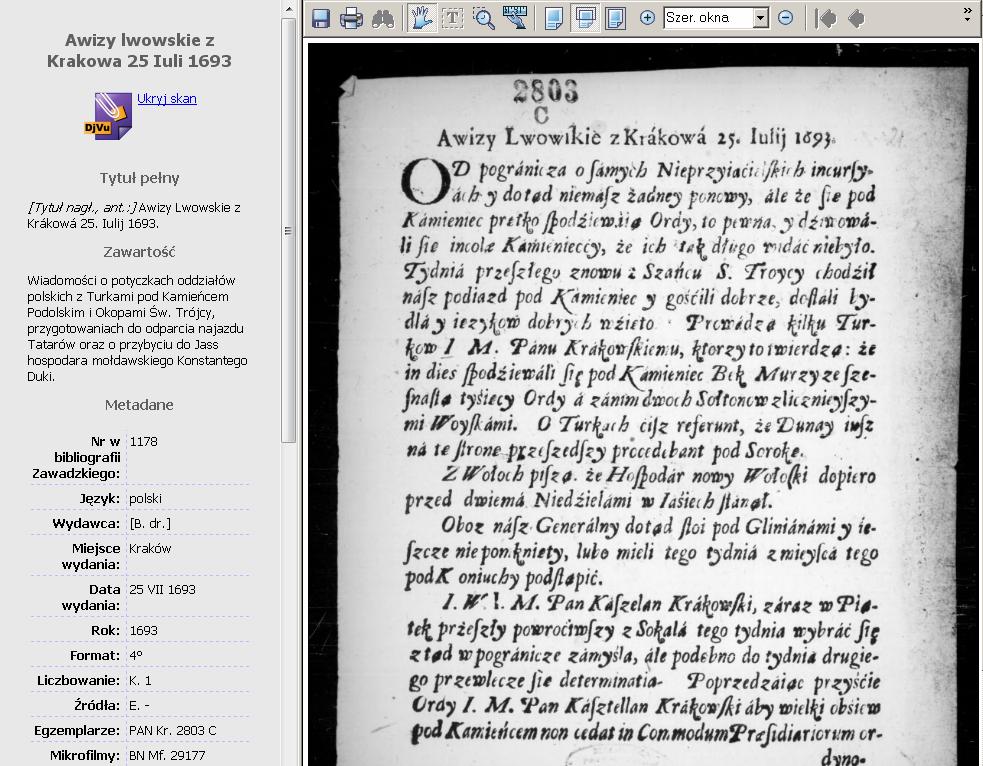 Awizy lwowskie z
Krakowa 25 Iuli 1693
DjVu
Ukryj skan
Tytuł pełny
[Tytuł nagł., ant.:] Awizy Lwowskie z
Krákowá 25. Iulij 1693.
Zawartość
Wiadomości o potyczkach oddziałów
polskich z Turkami pod Kamieńcem
Podolskim i Okopami Św. Trójcy,
przygotowaniach do odparcia najazdu
Tatarów oraz o przybyciu do Jass
hospodara mołdawskiego Konstantego
Duki.
Metadane
Nr w 1178
bibliografii
Zawadzkiego:
Język: polski
Wydawca: [B. dr.]
Miejsce Kraków
wydania:
Data 25 VII 1693
wydania:
Rok: 1693
Format: 4º
Liczbowanie: K. 1
Źródła: E. -
Egzemplarze: PAN Kr. 2803 C
Mikrofilmy: BN Mf. 29177
Szer. okna
2803
C
Awizy Lwowſkie z Krákowá 25. Iulij 1693.
OD pogránicza o ſámych Nieprzyiaćielſkich incurſy-
ách y dotąd niemáſz żadney ponowy, ále że ſie pod
Kámieniec prętko ſpodźiewáią Ordy, to pewna, y dźiwowá-
li ſie incolæ Kámienieccy, że ich ták długo widáć niebyło.
Tydniá przeſzłego znowu z Száńcu S. Troycy chodźił
náſz podiazd pod Kámieniec y gośćili dobrze, doſtáli by-
dłá y ięzykow dobrych wźięto. Prowádzą kilku Tur-
kow I M. Pánu Krákowſkiemu, ktorzy to twierdzą: że
in dies ſpodźiewáli ſię pod Kámieniec Bek Murzy ze ſze-
ſnaſtą tyśięcy Ordy á zá nim dwoch Sołtonow z licznieyſzy-
mi Woyſkámi. O Turkach ćiſz referunt, że Dunay iuſz
ná tę ſtronę przeſzedſzy procedebant pod Sorokę.
Z Wołoch piſzą. że Hoſpodár nowy Wołoſki dopiero
przed dwiemá Niedźielámi w Iáśiech ſtanął.
Oboz náſz Generálny dotąd ſtoi pod Gliniánámi y ie-
ſzcze nie pomknięty, lubo mieli tego tydniá z mieyſcá tego
pod K oniuchy podſtąpić.
I. W. I. M. Pan Káſzelan Krákowſki, záraz w Pią-
tek przeſzły powroćiwſzy z Sokalá tego tydnia wybráć ſię
ztąd w pogránicze zámyśla, ále podobno do tydniá drugie-
go przewlecze ſie determinatia- Poprzedzáiąc przyśćie
Ordy I. M. Pán Káſztellan Krákowſki áby wielki obśiew
pod Kamieńcem non cedat in Commodum Præſidiariorum or-
dyno-